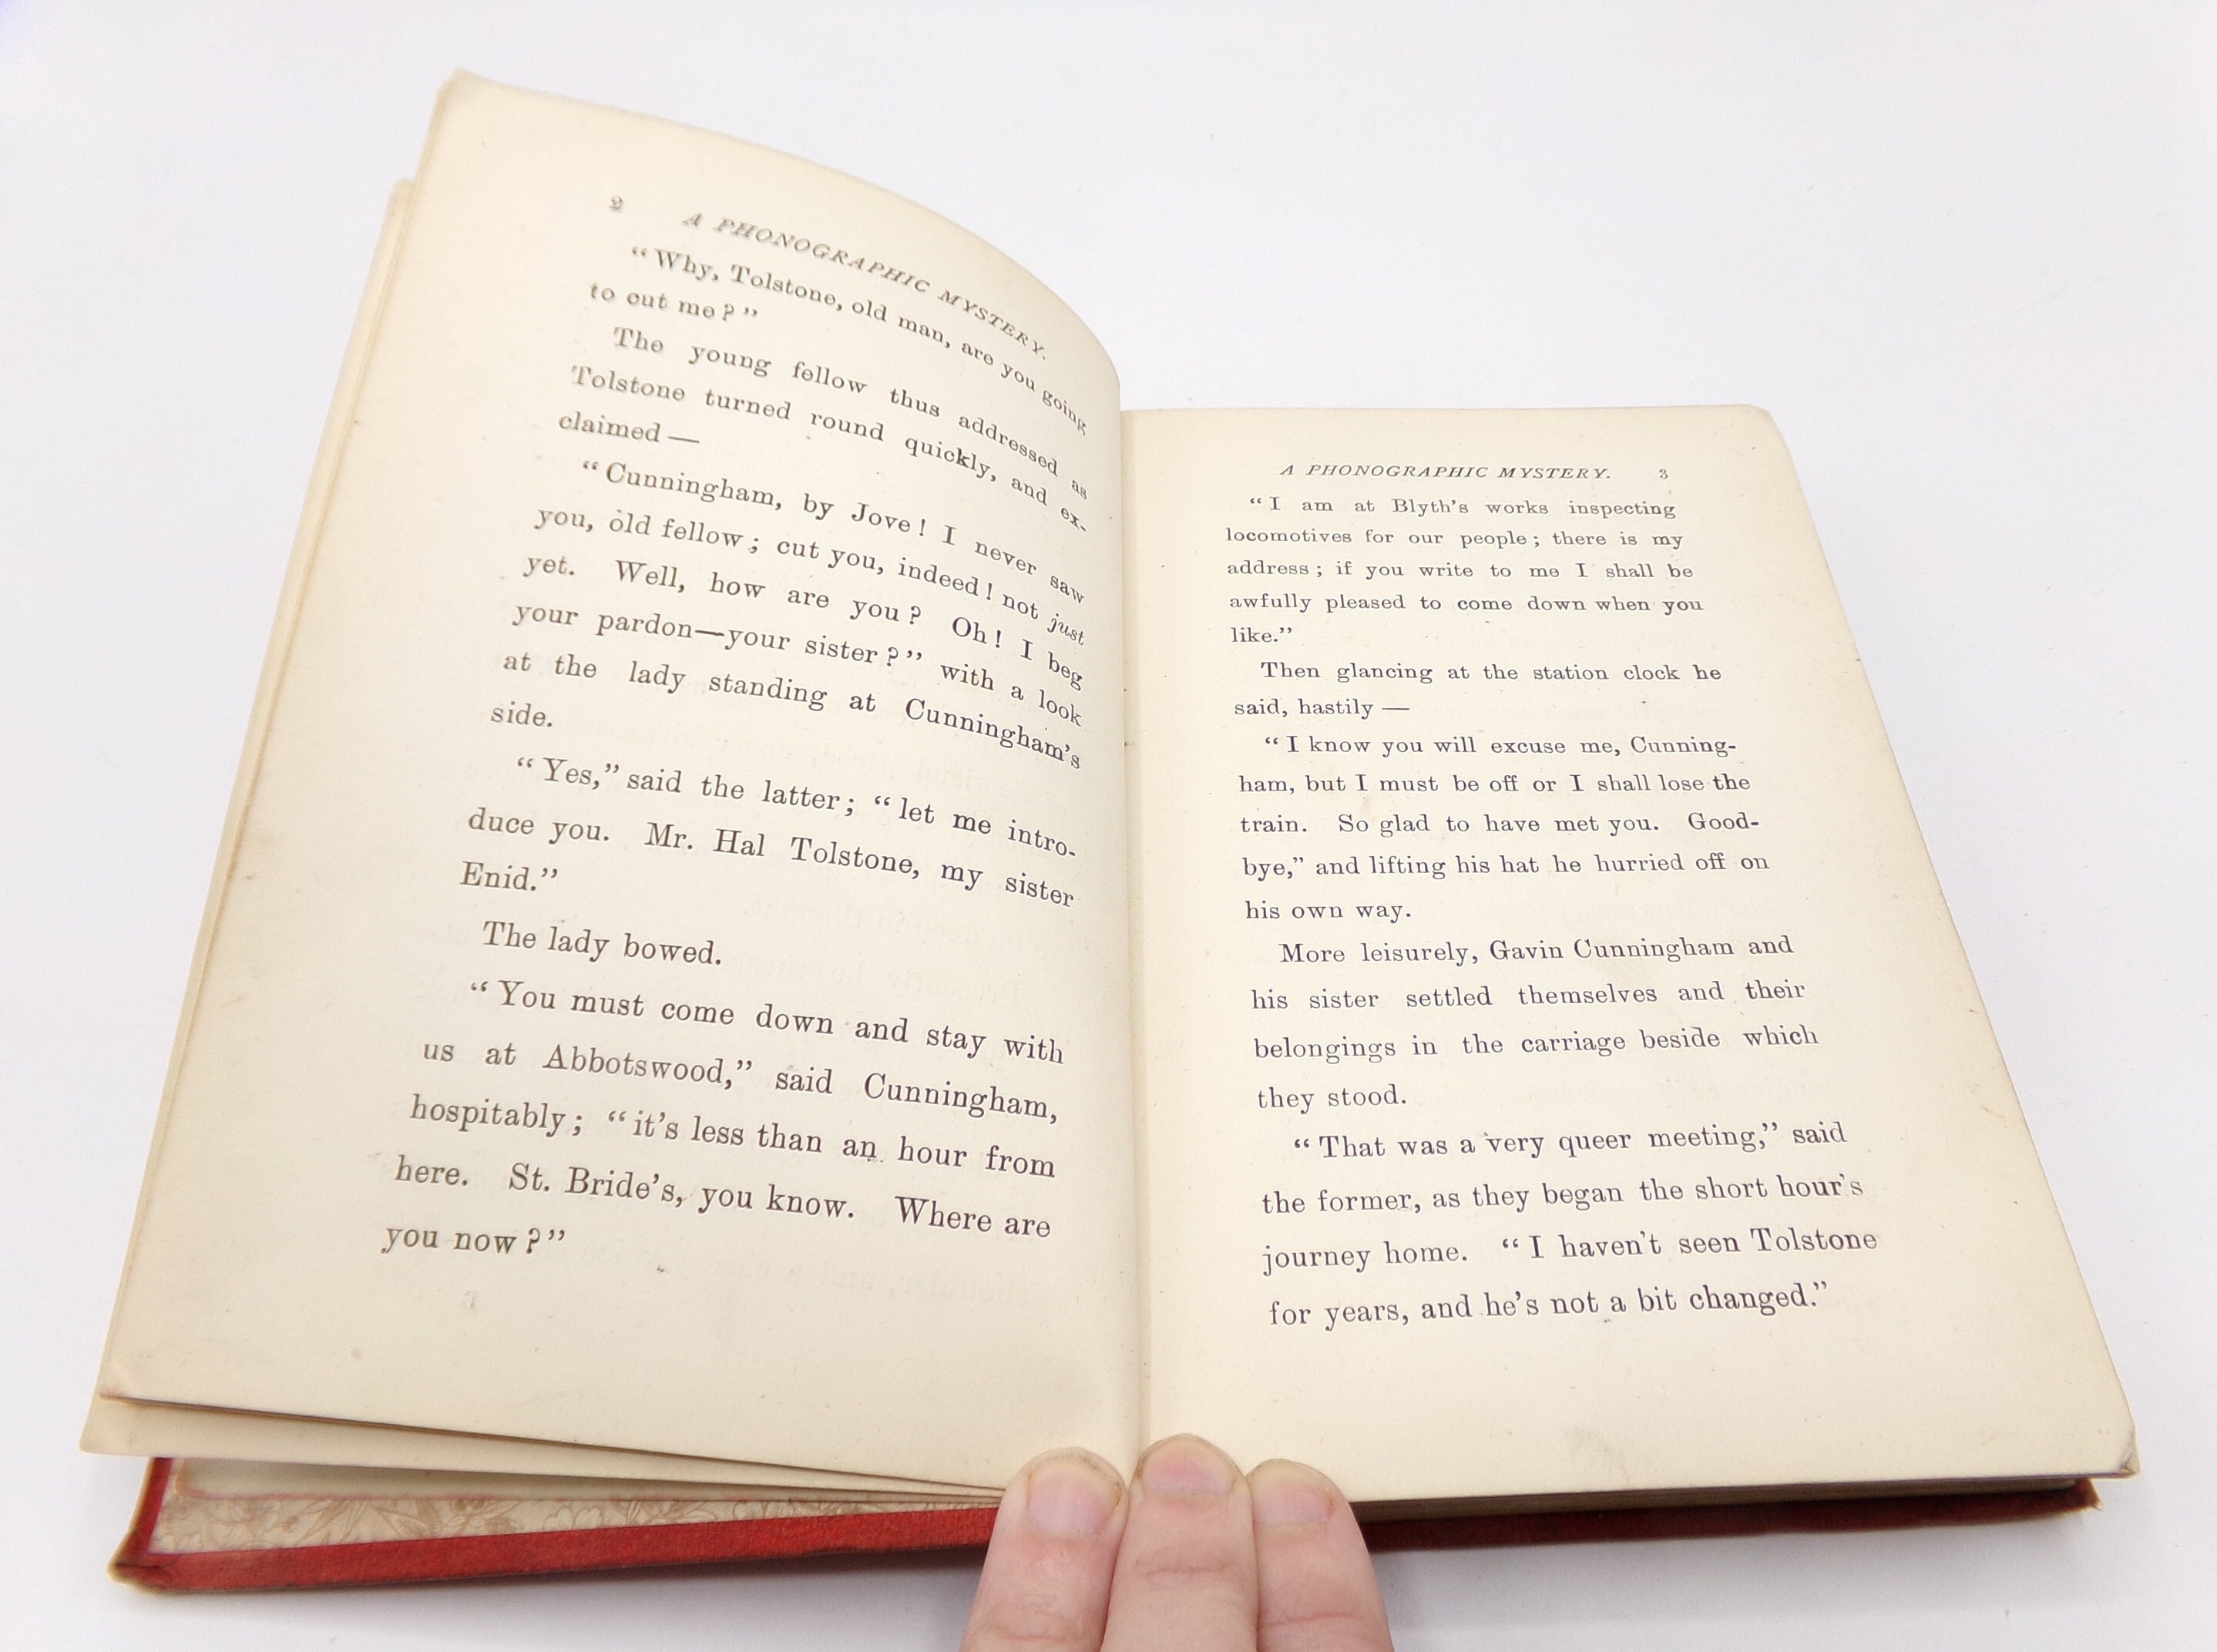 2 A PHONOGRAPHIC MYSTERY.
“Why, Tolstone, old man, are you going
to cut me?”
The young fellow thus addressed as
Tolstone turned round quickly, and ex-
claimed —
“Cunningham, by Jove! I never saw
you, old fellow; cut you, indeed! not just
yet. Well, how are you? Oh! I beg
your pardon—your sister?” with a look
at the lady standing at Cunningham’s
side.
“Yes,” said the latter; “let me intro-
duce you. Mr. Hal Tolstone, my sister
Enid.”
The lady bowed.
“You must come down and stay with
us at Abbotswood,” said Cunningham,
hospitably; “it’s less than an hour from
here. St. Bride’s, you know. Where are
you now?”
A PHONOGRAPHIC MYSTERY. 3
“I am at Blyth’s works inspecting
locomotives for our people; there is my
address; if you write to me I shall be
awfully pleased to come down when you
like.”
Then glancing at the station clock he
said, hastily —
“I know you will excuse me, Cunning-
ham, but I must be off or I shall lose the
train. So glad to have met you. Good-
bye,” and lifting his hat he hurried off on
his own way.
More leisurely, Gavin Cunningham and
his sister settled themselves and their
belongings in the carriage beside which
they stood.
“That was a very queer meeting,” said
the former, as they began the short hour’s
journey home. “I haven’t seen Tolstone
for years, and he’s not a bit changed.”